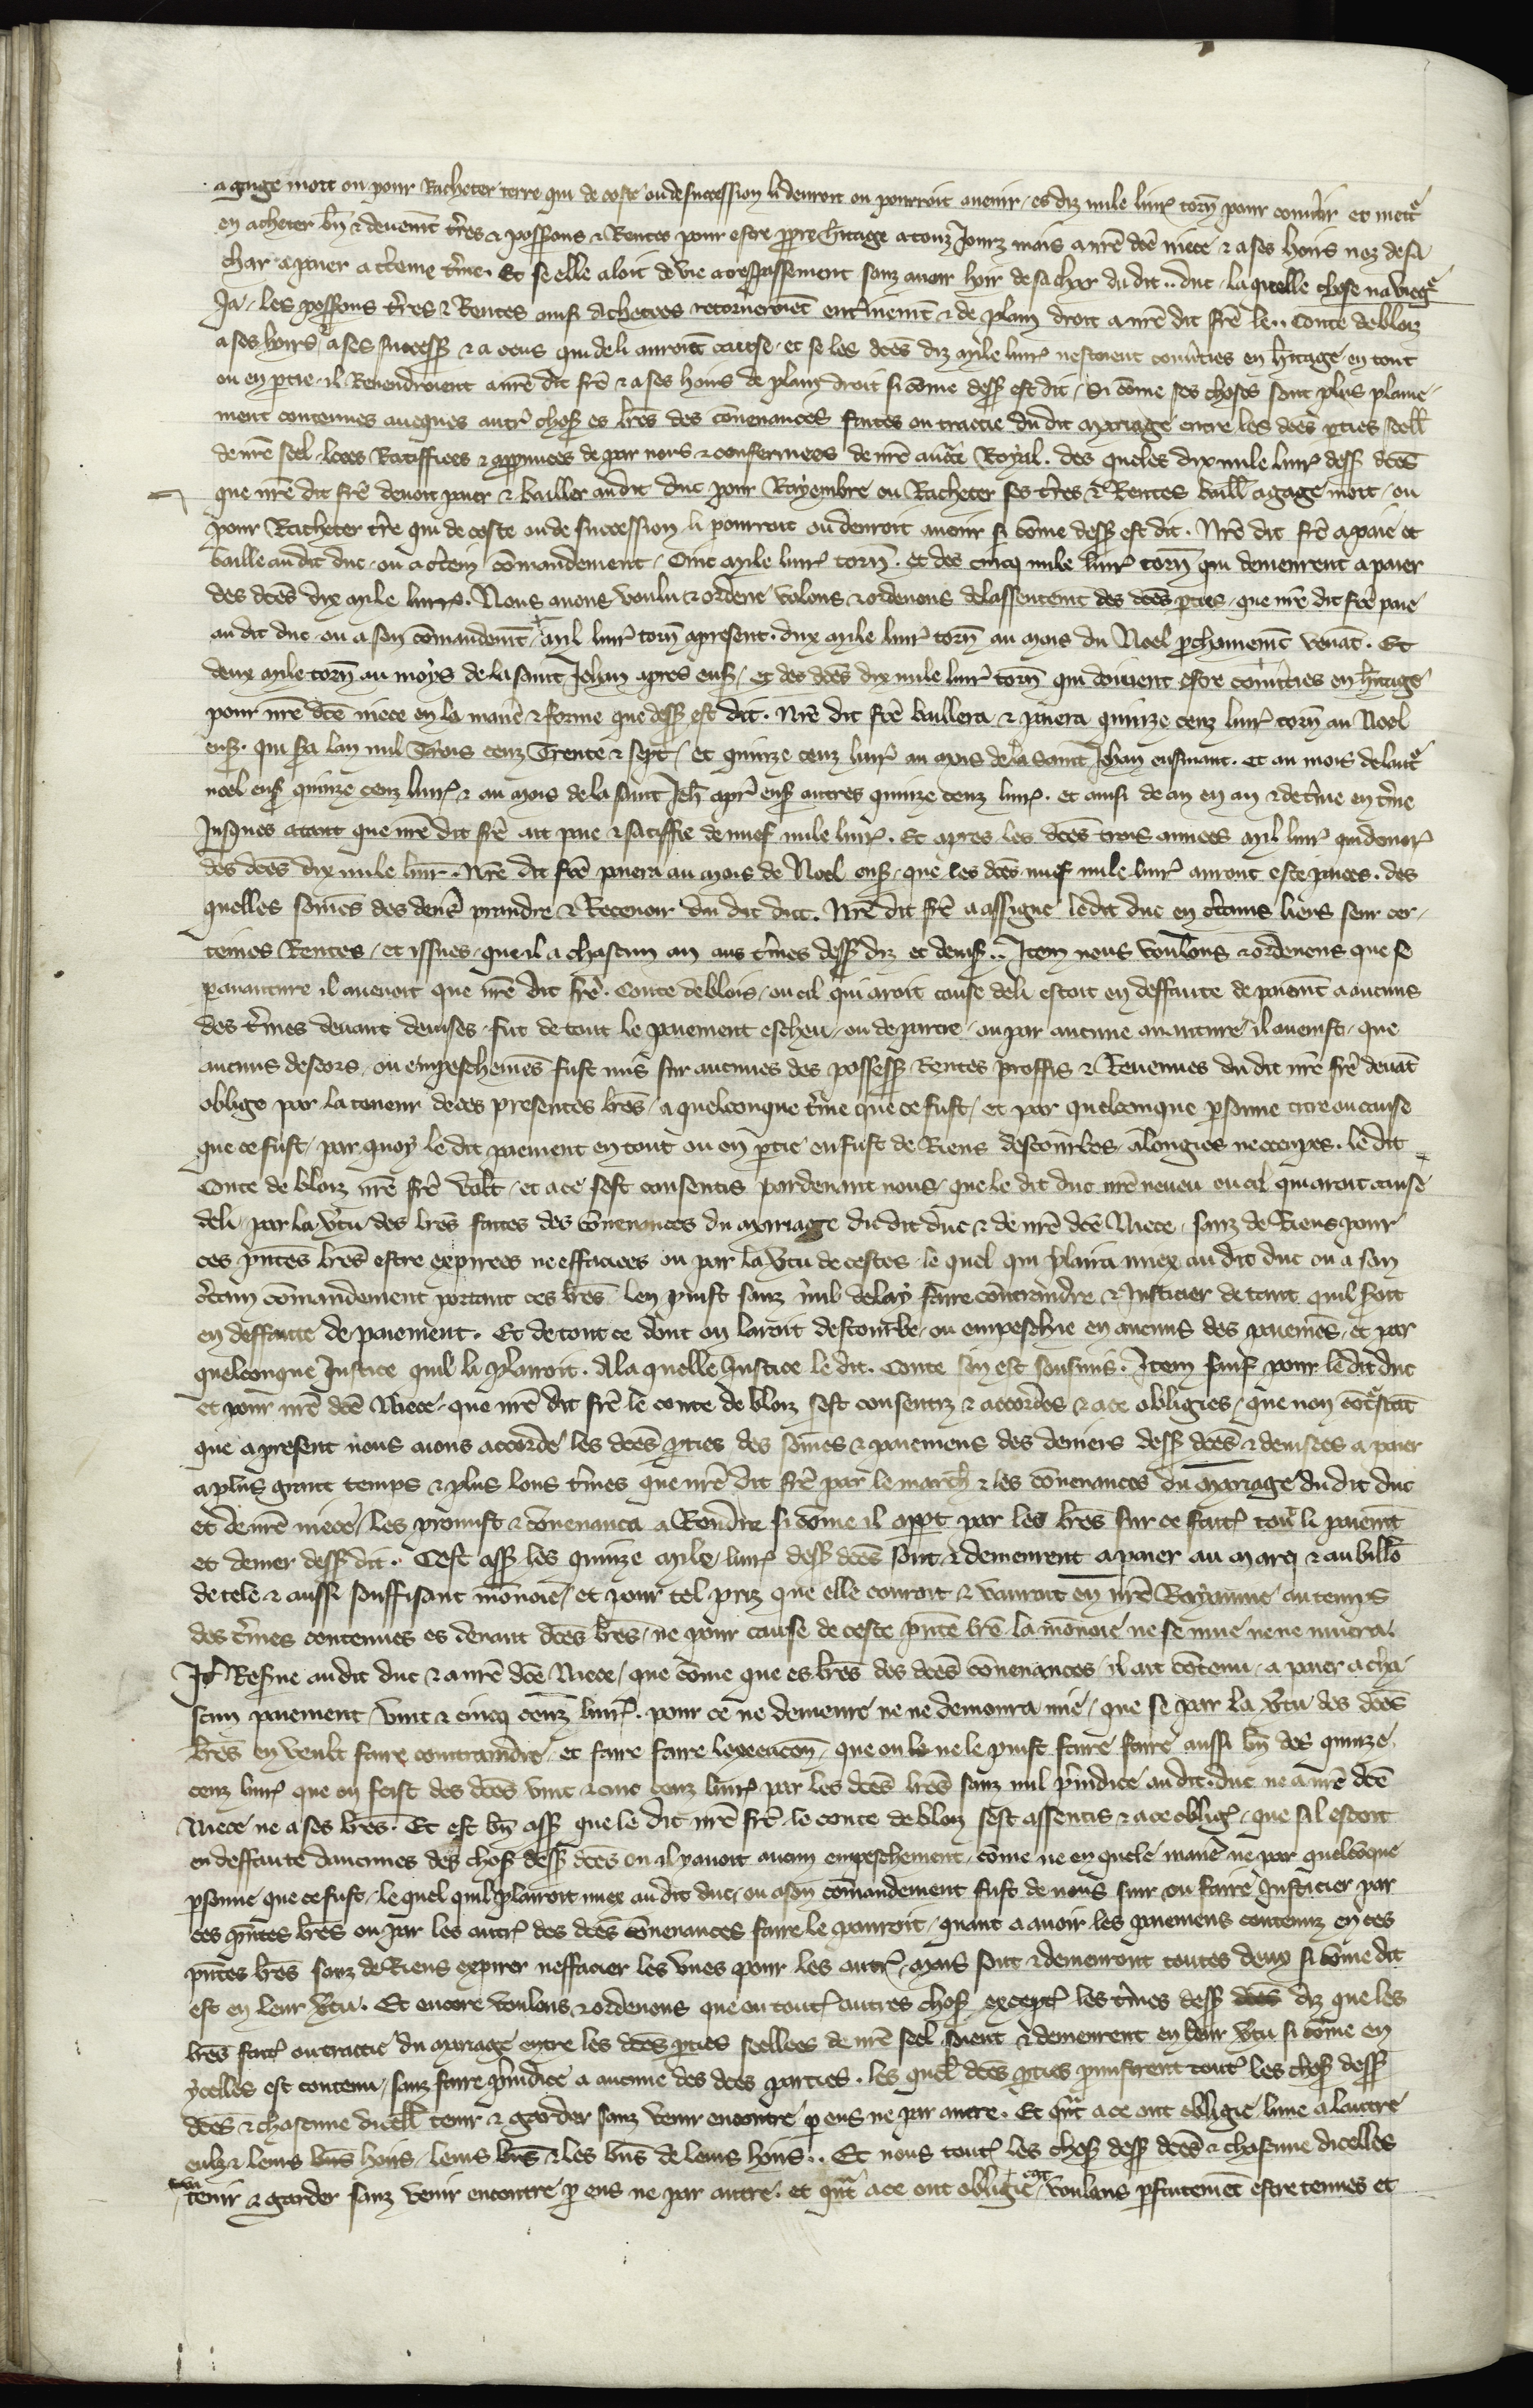 a gage mort ou pour Racheter terre qui de coste ou de succession li devroit ou pourroit avenir, es diz mile livr torn pour convtir et mettre
en acheter bn & deuemt tres & possons & Rentes pour estre ppre hitage a touz Jourz mais a nre dce niece & a ses hoirs nez de sa
char a paier a cteme tme. Et se elle aloit de vie a trespassement sanz avoir hoir de sa char du dit .. duc, la quelle chose na viegne
Ja, les possons tres & Rentes ainsi Achetees retorneroient entinemt & de plain droit a nre dit fre le .. Conte de blois
a ses hoirs, a ses success & a ceus qui de li auroient cause, et se les dces diz mile livr nestoient convties en hitage en tout
ou en ptie, il Revendroient a nre dit fre & a ses hoirs de plain droit si come dess est dit, Si come ses choses sont plus plaine
ment contenues aveques autr chos es lres des convenances faites ou traitie du dit mariage entre les dces pties seell
de nre seel, leees Ratiffiees & appruvees de par nous & confermees de nre aucte Royal. des queles dix mile livr dess dces
que nre dit fre devoit paier & bailler au dit duc pour Rayembre ou Racheter ses tres & Rentes baill a gage mort, ou
pour Racheter tre qui de coste ou de succession li pourroit ou devroit avenir si come dess est dit. Nre dit fre a paie et
baille au dit duc, ou a ctein comandement, Cinc mile livr torn. et des cincq mile livr torn qui demeurent a paier
des dces dix mile livres. Nous avons voulu & ordene volons & ordenons de lassentemt des dces pties, que nre dit fre paie
au dit duc, ou a son comandemt, mil livr torn apresent, dux mile livr torn au mois du Noel pchainemt venat. Et
deux mile torn au moys de la saint Jehan apres ens, et des dces dix mile livr torn qui doivent estre convties en hitage
pour nre dce niece en la manie & forme que dess est dit. Nre dit fre baillera & paiera quinze cenz livr torn au Noel
ens. qui sra lan mil Trois cenz Trente & sept, et quinze cenz livr au mois de la saint Jehan ensivant. et au mois de lautre
noel ens quinze cenz livr & au mois de la saint Jeh apr ens autres quinze cenz livr. et ainsi de an en an & de tme en tme
Jusques atant que nre dit fre ait paie & satiffie de nuef mile livr. Et apres les dces trois annees mil livr qui demor
des dces dix mile livr. Nre dit fre paiera au mois de Noel ens, que les dces nuef mile livr auront este paiees. des
quelles somes des deniers prandre & Recevoir du dit duc. Nre dit fre a assigne le dit duc en ctains liens seur cer
teines Rentes, et issues, que il a chascun an aus tmes dess diz et devis.. Item nous voulons & ordenons que se
paventure il avenoit que nre dit fre. Conte de blois, ou cil qui aroit cause de li estoit en deffaute de paiemt a aucuns
des tmes devant devises, fut de tout le paiement escheu, ou de partie, ou par aucune aventure il avenist, que
aucuns descors, ou empeschemes fust mis sur aucunes des possess, Rentes proffis & Revenues du dit nre fre devat
oblige par la teneur de ces presentes lres, a quelconque tme que ce fust, et par quelconque psonne titre ou cause
que ce fust, par quoy le dit paiement en tout ou en ptie en fust de Riens descombres alongies ne corrupes. le dit
Conte de blois nre fre volt, et a ce sest consentis pardevant nous, que le dit duc nre neveu ou cil qui aroit cause
de li, par la vtu des lres faites des convenances du mariage du dit duc & de nre dce Niece, sanz de Riens pour
ces pntes lres estre expirees ne effaciees ou par la vtu de cestes, le quel qui plaira miex au dit duc ou a son
ctain comandement portant ces lres len puist sanz nul delay faire contraindre & Justicier de tant quil seroit
en deffaute de paiement. Et de tout ce dont on laroit descombe, ou empeschie en aucuns des paiemes, et par
quelconque Justice quil li plairoit. A la quelle Justice le dit. Conte sen est sousmis. Item sauf pour le dit duc
et pour nre dce Niece, que nre dit fre le conte de blois sest consentiz & accordes & a ce obligies, que non cotrestat
que apresent nous aions accorde les dces pties des somes & paiemens des deniers dess dces & devisees a paier
a plus grant temps & plus lons tmes que nre dit fre par le march & les convenances du mariage du dit duc
et de nre niece, les promist & convenanca a Rendre si come il appt par les lres sur ce fait, touz li paiemt
et denier dess dit. Cest ass les quinze mile livr dess dces sont & demeurent a paier au marc & au billo
de tele & aussi souffisant monoie, et pour tel priz que elle couroit & vauroit en nre Royaume au temps
des tmes contenues es devant dces lres, ne pour cause de ceste pnte lre la monoie ne se mue ne ne muera.
It Resve au dit duc & a nre dce Niece, que come que es lres des dces convenances, il ait contenu, a paier a cha
scun paiement, vint & cincq cenz livr. pour ce ne demeure ne ne demoura mie, que se par la vtu des dces
lres en veult faire contraindre, et faire faire lexecucon, que ou le ne le puist faire faire aussi bn des quinze
cenz livr que on feist des dces vint & cinc cenz livr par les dces lres sanz nul piudice au dit. duc ne a nre dce
Niece ne a ses lres. Et est bn ass que le dit nre fre le conte de blois sest assentis & a ce oblig, que sil estoit
en deffaute daucunes des chos dess dces ou il y avoit aucun empeschement, come ne en quele manie ne par quelcoque
psonne que ce fust, le quel quil plairoit miex au dit duc, ou a son comandement fust de nous suir ou faire Justicier par
ces pntes lres ou par les autr des dces convenances faire le pouroit, quant a avoir les paiemens contenuz en ces
pntes lres sanz de Riens expirer neffacier les unes pour les autr, mais sont & demeuront toutes deux si come dit
est en leur vtu. Et encore voulons & ordenons que en tout autres chos except les tmes dess dces diz que les
lres fait ou traitie du mariage entre les dces pties seellees de nre seel, soient & demeurent en leur vtu si come en
ycelles est contenu, sanz faire piudice a aucune des dces parties. les quel dces pties pmistrent tout les chos dess
dces & chascune dicell tenir & garder sanz venir encontre p eus ne par autre. Et qnt a ce ont obligie lune a lautre
eulz & leurs bns hoirs, leurs bns & les bns de leurs hoirs.. Et nous tout les chos dess dces & chascune dicelles
tenir & garder sanz venir encontre p eus ne par autre. et qnt a ce ont obligie voulons pfaitemet estre tenues et